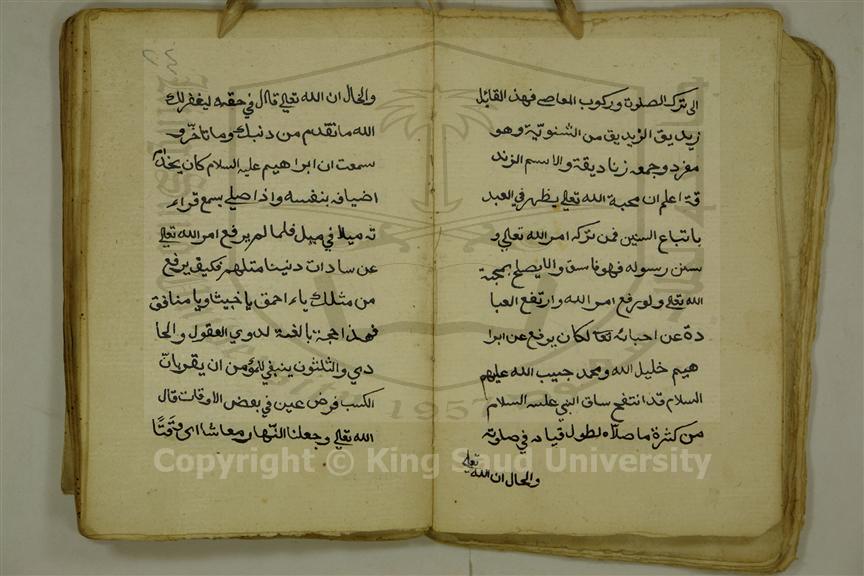 الى ترك الصلوة وركوب المعاصي فهذ القايل
زيديق الزيديق من الثنوية وهو
مفرد وجمعه زناديقة والاسم الزند
قة اعلم ان محبة الله تعالى يظهر في العبد
باتباع السنين فمن تركه امر الله تعالى و
سنن رسوله فهو فاسق والا يصلح لمحبة
الله تعالى ولو رفع امر الله وارتفع العبا
دة عن احبائه تعا لكان يرفع عن ابرا
هيم خليل الله ومحمد حبيب الله عليهم
السلام قد انتفح ساق النبي عليه السلام
من كثرة ما صلاه لطول قيامه في صلوته
والحال ان الله تعالى
والحال ان الله تعالى قال في حقه ليغفر لك
الله ما تقدم من ذنبك وما تأخر و
سمعت ان ابراهيم عليه السلام كان يخدم
اضيافه بنفسه واذا صلى يسمع قراء
ته ميلا في ميل فلما لم يرفع امر الله تعالى
عن سادات ديننا مثلهم فكيف يرفع
من مثلك ياء احمق يا خبيثا ويا منافق
فهذا حجة بالغة لذوي العقول والحا
دي والثلثون ينبغي للمؤمن ان يقر بان
الكسب فرض عين في بعض الاوقات قال
الله تعالى وجعلنا النهار معاشا اى وقتا
Copyright © King Saud University
1957